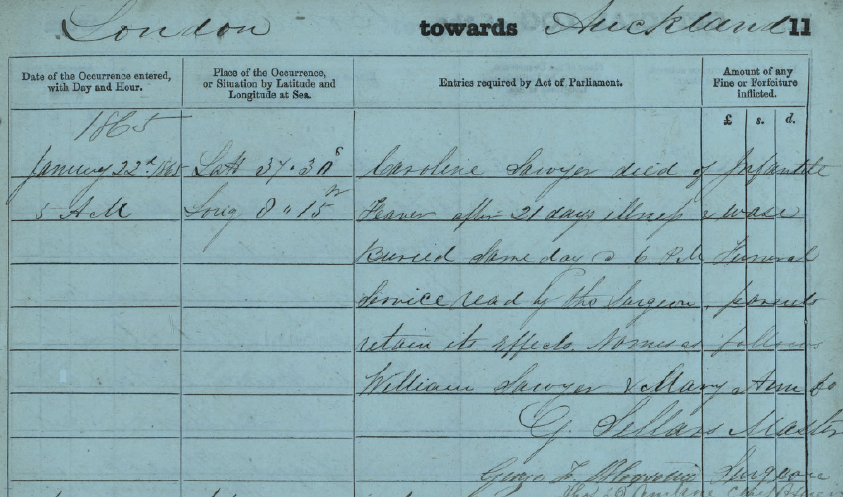 London towards Auckland 11
Date of the Occurrence entered, with Day and Hour.
Place of the Occurrence, or Situation by Latitude and Longitude at Sea.
Entries required by Act of Parliament.
Amount of any Fine or Forfeiture inflicted.
£ s. d.
1865
January 22d 1865 Latt 37 " 30 S Caroline Sawyer died of Infantile
5 AM Long 8 " 15 W Feaver after 21 days illness & wase
Buried Same day @ 6 P.M Funeral
Service read by the Surgeon, parents
retain its Effects Names as follows
William Sawyer & Mary Ann Do
G Sellars Master
George F. Surgeon